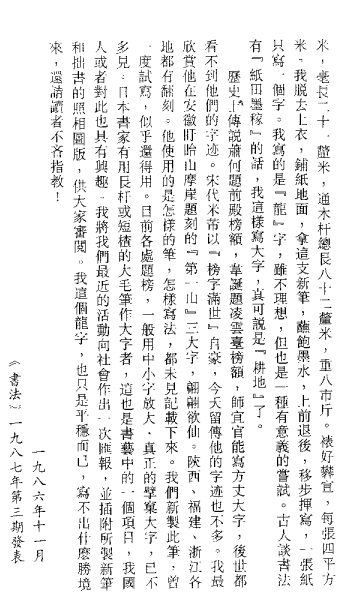 米，毫長二十一釐米，通木杆總長八十二釐米，重八市斤。裱好夾宣，每張四平方
米。我脱去上衣，鋪紙地面，拿這支新筆，蘸飽墨水，上前退後，移步揮寫，一張紙
只寫一個字。我寫的是『龍』字，雖不理想，但也是一種有意義的嘗試。古人談書法
有『紙田墨稼』的話，我這樣寫大字，真可説是『耕地』了。
歷史上傳説蕭何題前殿榜額，韋誕題凌雲臺榜額，師宜官能寫方丈大字，後世都
看不到他們的字迹。宋代米芾以『榜字滿世』自豪，今天留傳他的字迹也不多。我最
欣賞他在安徽盱眙山摩崖題刻的『第一山』三大字，翩翩欲仙。陝西、福建、浙江各
地都有翻刻。他使用的是怎樣的筆，怎樣寫法，都未見記載下來。我們新製此筆，曾
一度試寫，似乎還得用。目前各處題榜，一般用中小字放大，真正的擘窠大字，已不
多見。日本書家有用長杆或短𣖔的大毛筆作大字者，這也是書藝中的一個項目，我國
人或者對此也具有興趣。我將我們最近的活動向社會作出一次匯報，並插附所製新筆
和拙書的照相圖版，供大家審閲。我這個龍字，也只是平穩而已，寫不出什麽勝境
來，還請讀者不吝指教！
一九八六年十一月
《書法》一九八七年第三期發表